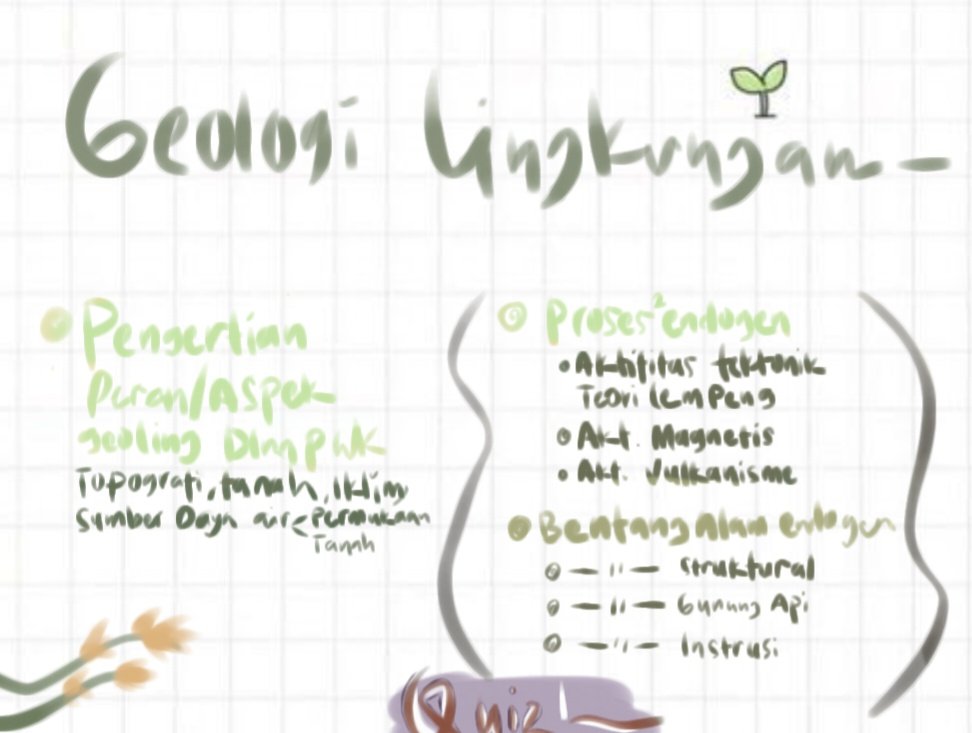 Geologi Lingkungan
Pengertian
Peran/Aspek
geoling Dlm PWK
Topografi, tanah, iklim
Sumber Daya air < Permukaan
Tanah
Proses² endogen
• Aktifitas tektonik
Teori lempeng
• Akt. Magnetis
• Akt. Vulkanisme
Bentang Alam endogen
— " — Struktural
— " — Gunung Api
— " — Instrusi
Quiz 1